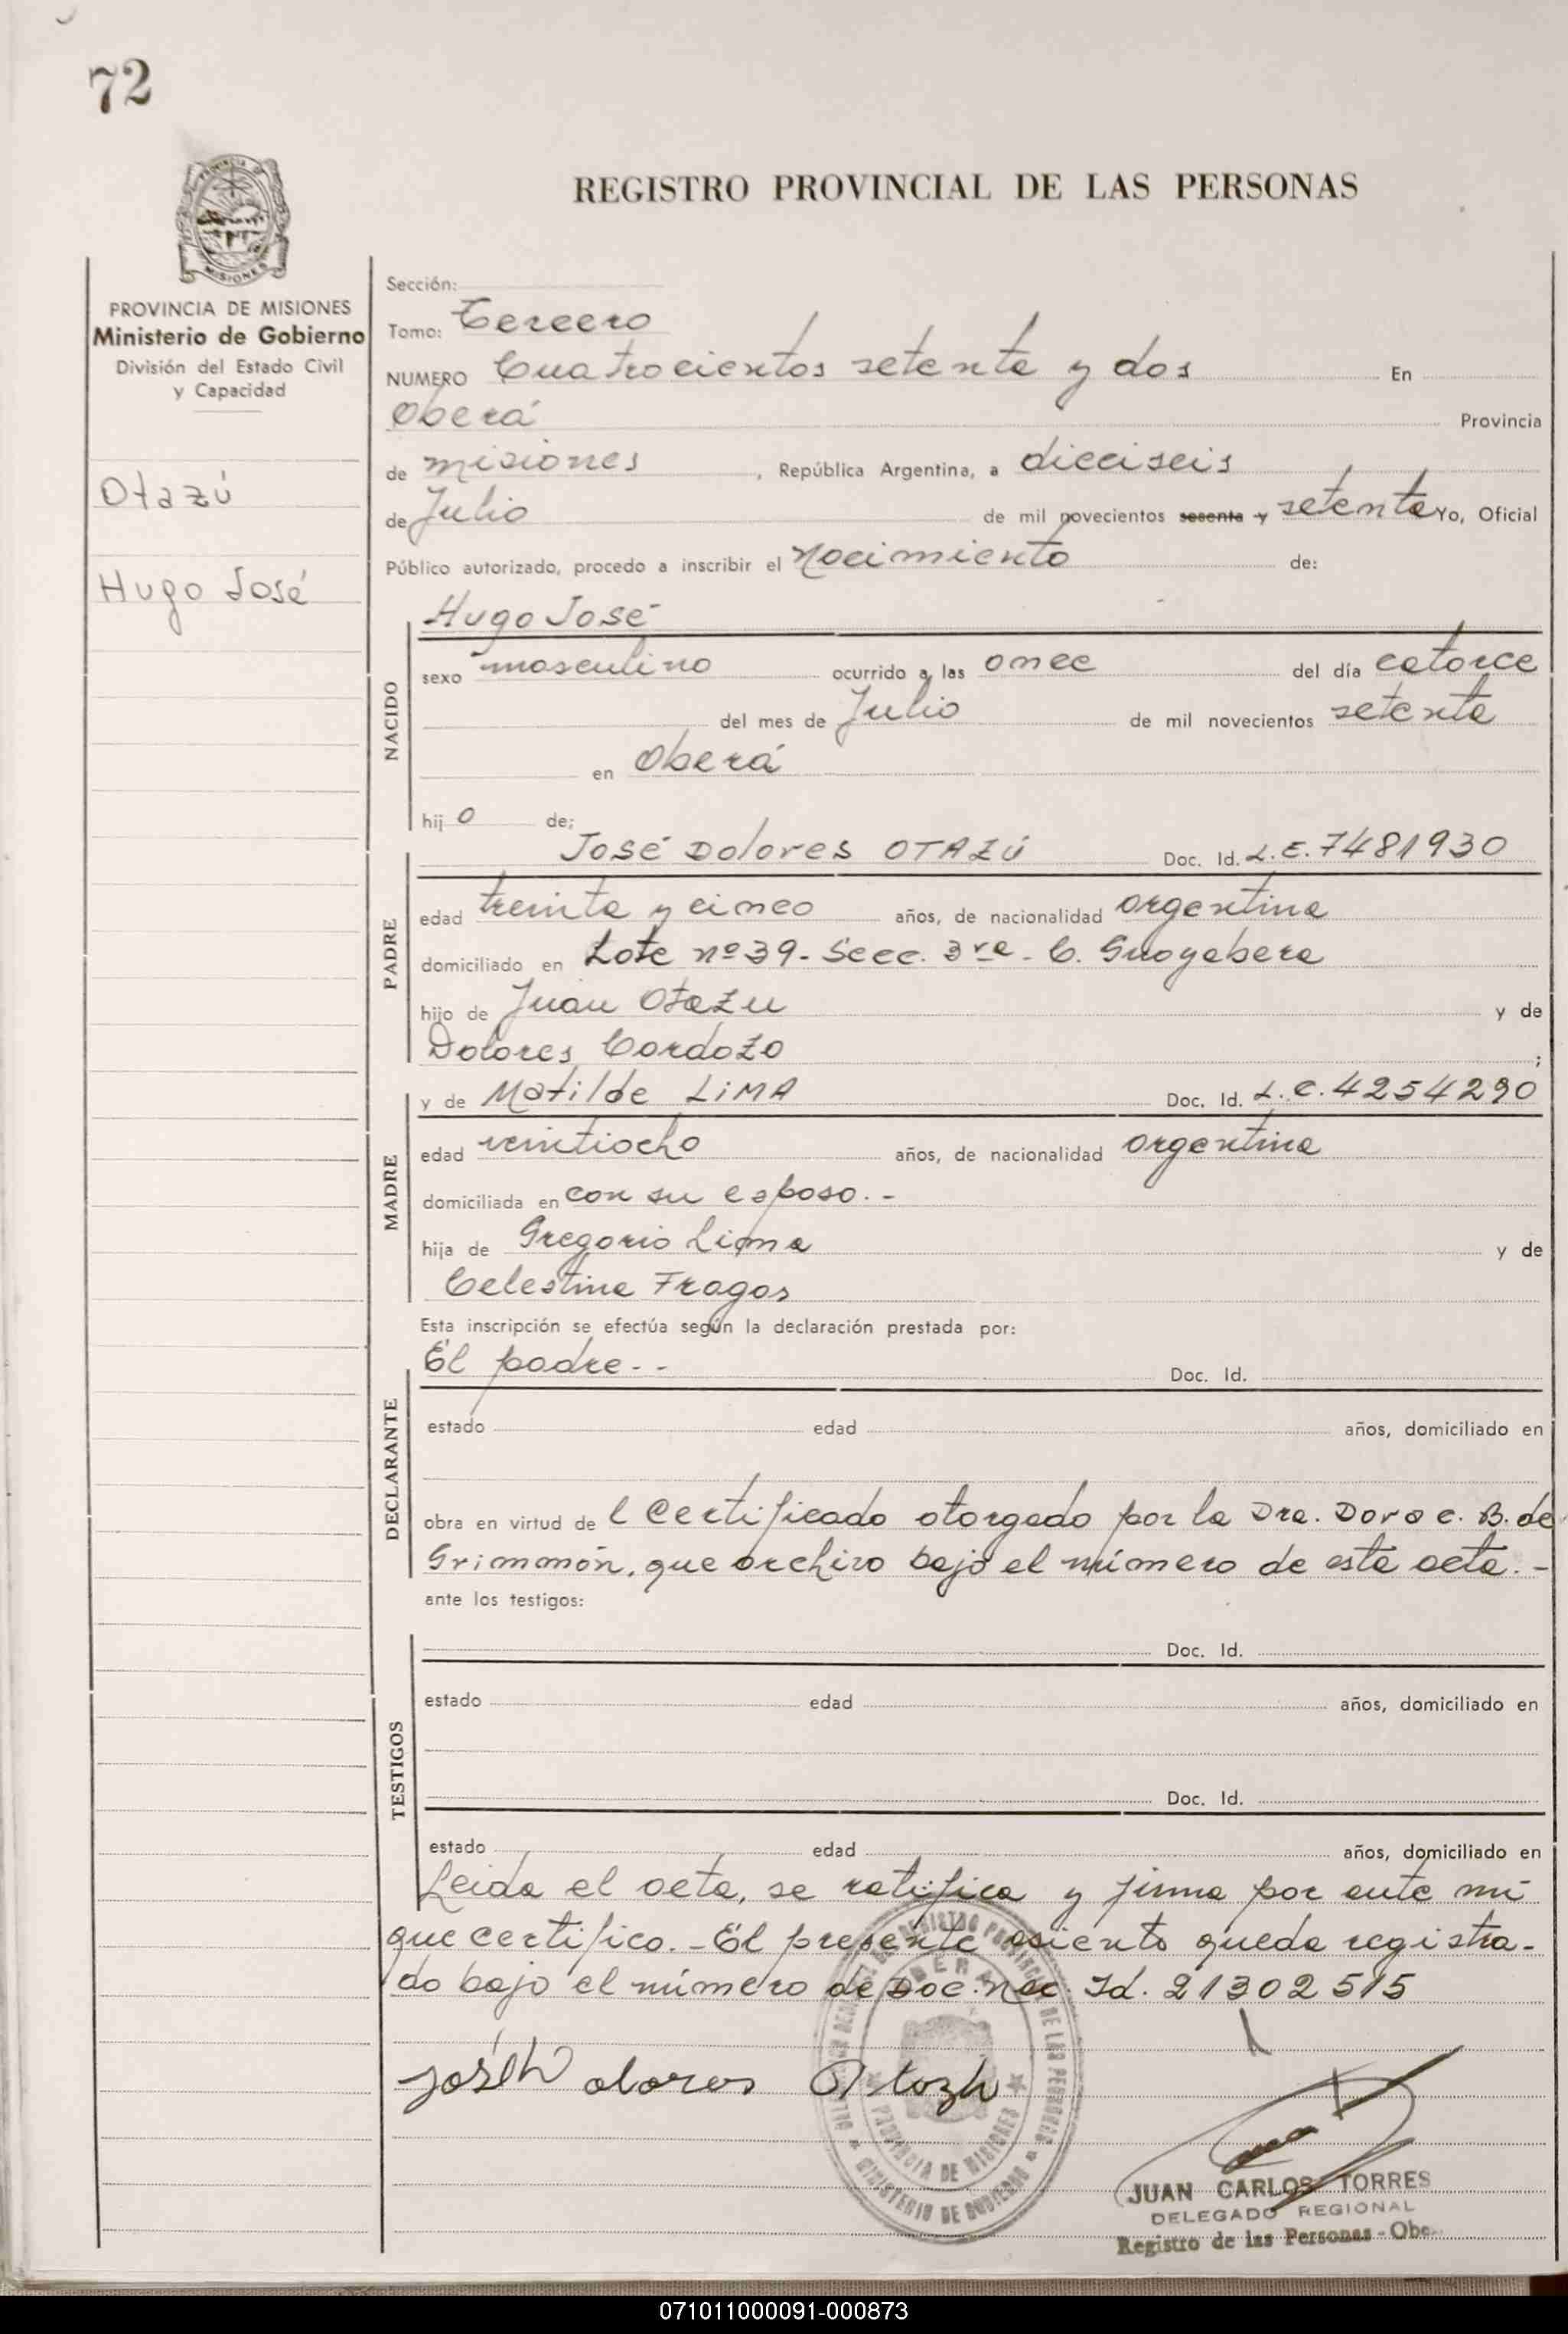 72
PROVINCIA DE
MISIONES
PROVINCIA DE MISIONES
Ministerio de Gobierno
División del Estado Civil
y Capacidad
Otazú
Hugo José
REGISTRO PROVINCIAL DE LAS PERSONAS
Sección:
Tomo: Tercero
NUMERO Cuatrocientos setenta y dos En
Oberá Provincia
de misiones, República Argentina, a dieciseis
de Julio de mil novecientos sesenta y setenta Yo, Oficial
Público autorizado, procedo a inscribir el Nacimiento de:
NACIDO
Hugo José
sexo masculino ocurrido a las once del día catorce
del mes de Julio de mil novecientos setenta
en Oberá
hij o de;
PADRE
José Dolores OTAZÚ Doc. Id. L.E. 7481930
edad treinta y cinco años, de nacionalidad argentina
domiciliado en Lote nº 39 - Secc. 3ra - C. Guayabera
hijo de Juan Otazu y de
Dolores Cardozo ;
MADRE
y de Matilde LIMA Doc. Id. L.C. 4254290
edad veintiocho años, de nacionalidad argentina
domiciliada en con su esposo. -
hija de Gregorio Lima y de
Celestina Fragas
Esta inscripción se efectúa según la declaración prestada por:
DECLARANTE
El padre - - Doc. Id.
estado edad años, domiciliado en
obra en virtud de l Certificado otorgado por la Dra. Dora C. B. de
Grimmón, que archivo bajo el número de esta acta. -
ante los testigos:
TESTIGOS
Doc. Id.
estado edad años, domiciliado en
Doc. Id.
estado edad años, domiciliado en
Leida el acta, se ratifica y firma por ante mi
que certifico. - El presente asiento queda registra-
do bajo el número de Doc. Nac. Id. 21302515
OBERA
PROVINCIA DE MISIONES
MINISTERIO DE GOBIERNO
JUAN CARLOS TORRES
DELEGADO REGIONAL
Registro de las Personas - Obe
071011000091-000873